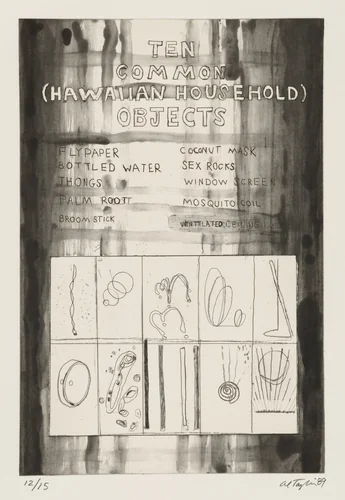 TEN
COMMON
(HAWAIIAN HOUSEHOLD)
OBJECTS
FLYPAPER
BOTTLED WATER
THONGS
PALM ROOT
BROOMSTICK
COCONUT MASK
SEX ROCKS
WINDOW SCREEN
MOSQUITO COIL
VENTILATED CEILING
12/15
Al Taylor '89